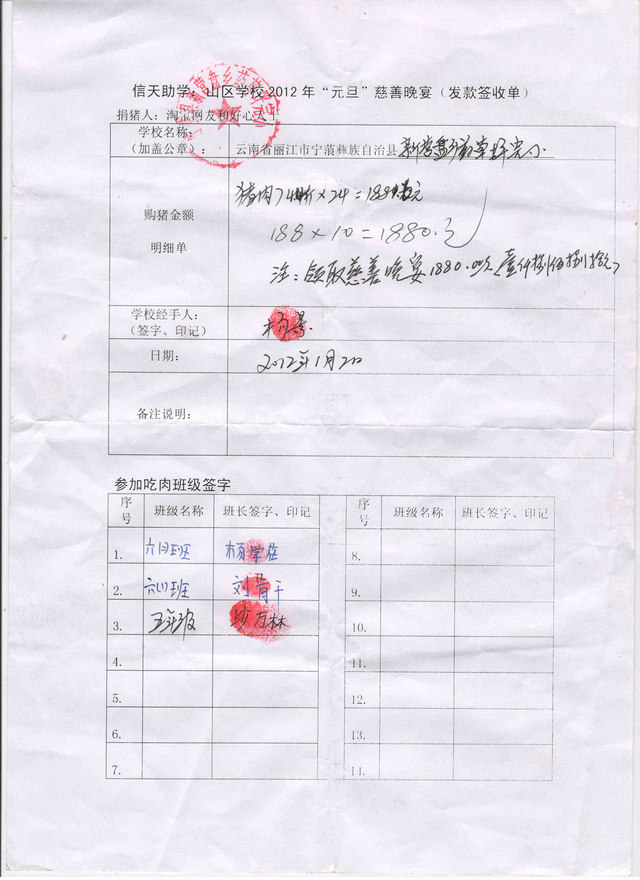 信天助学：山区学校2012年“元旦”慈善晚宴（发款签收单）
捐猪人：淘宝网友和好心人士
学校名称：
（加盖公章）：
云南省丽江市宁蒗彝族自治县
购猪金额
明细单
188×10=1880.元
注：领取慈善晚宴1880.00元
学校经手人：
（签字、印记）
日期：
2012年1月2日
备注说明：
参加吃肉班级签字
序号 班级名称 班长签字、印记 序号 班级名称 班长签字、印记
1. 杨学 8.
2. 六(1)班 刘 9.
3. 五年级 沙万林 10.
4. 11.
5. 12.
6. 13.
7. 14.